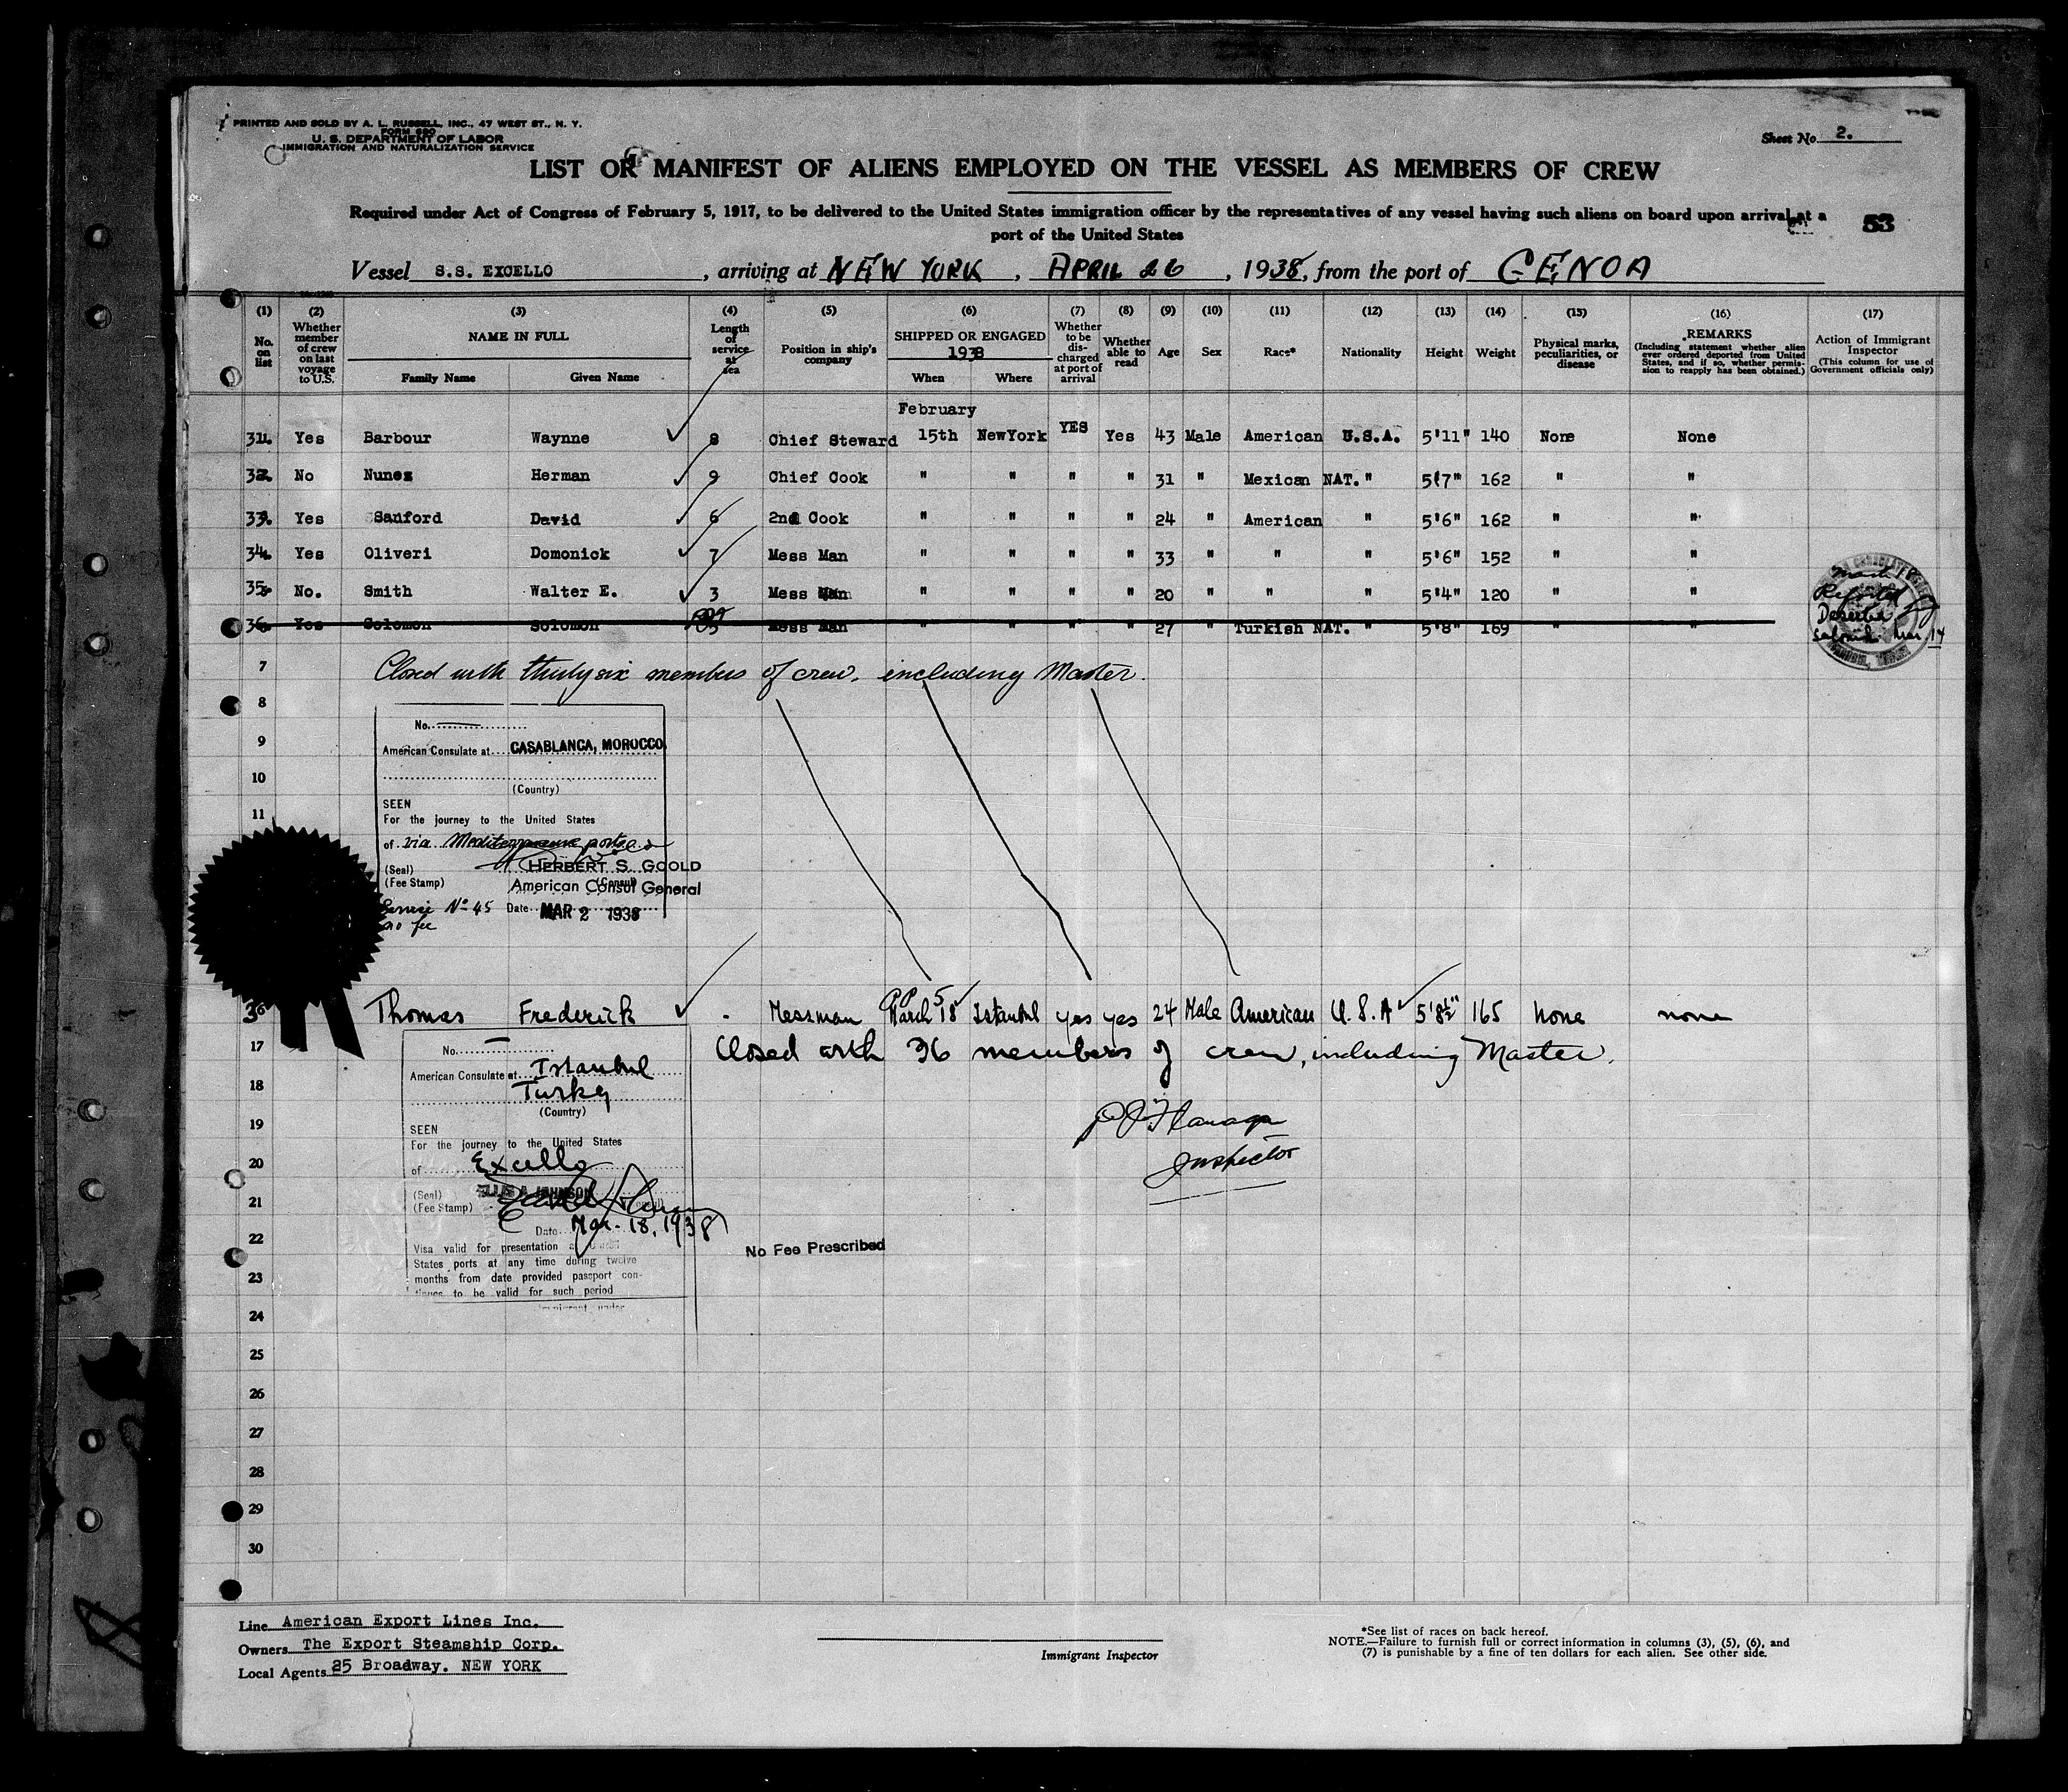 PRINTED AND SOLD BY A. L. RUSSELL, INC., 47 WEST ST., N. Y.
FORM 680
U. S. DEPARTMENT OF LABOR
IMMIGRATION AND NATURALIZATION SERVICE
Sheet No. 2.
LIST OR MANIFEST OF ALIENS EMPLOYED ON THE VESSEL AS MEMBERS OF CREW
Required under Act of Congress of February 5, 1917, to be delivered to the United States immigration officer by the representatives of any vessel having such aliens on board upon arrival at a
port of the United States
53
Vessel S.S. EXCELLO, arriving at NEW YORK, APRIL 26, 1938, from the port of GENOA
(1) No. on list
(2) Whether member of crew on last voyage to U.S.
(3) NAME IN FULL Family Name Given Name
(4) Length of service at sea
(5) Position in ship's company
(6) SHIPPED OR ENGAGED 1938 When Where
(7) Whether to be discharged at port of arrival
(8) Whether able to read
(9) Age
(10) Sex
(11) Race*
(12) Nationality
(13) Height
(14) Weight
(15) Physical marks, peculiarities, or disease
(16) REMARKS (Including statement whether alien ever ordered deported from United States, and if so, whether permission to reapply has been obtained.)
(17) Action of Immigrant Inspector (This column for use of Government officials only)
February
31. Yes Barbour Waynne 8 Chief Steward 15th NewYork YES Yes 43 Male American U.S.A. 5'11" 140 None None
32. No Nunez Herman 9 Chief Cook " " " " 31 " Mexican NAT. " 5'7" 162 " "
33. Yes Sanford David 6 2nd Cook " " " " 24 " American " 5'6" 162 " "
34. Yes Oliveri Domonick 7 Mess Man " " " " 33 " " " 5'6" 152 " "
35. No. Smith Walter E. 3 Mess Man " " " " 20 " " " 5'4" 120 " "
36. Yes Solomon Solomon Mess Man " " " " 27 " Turkish NAT. " 5'8" 169 " "
March 18
Reported
Deserted
Mar 14
7 Closed with thirty six members of crew, including Master.
8
No.
9
American Consulate at CASABLANCA, MOROCCO
10
(Country)
SEEN
11
For the journey to the United States
of via Mediterranean ports
(Seal) HERBERT S. GOOLD
(Fee Stamp) American Consul General
(Consul)
Service No 45 Date MAR 2 1938
no fee
36 Thomas Frederick - Messman March 18 Istanbul yes yes 24 Male American U.S.A 5'8½" 165 none none
17 Closed with 36 members of crew, including Master.
No.
American Consulate at Istanbul
18 Turkey
(Country)
19
SEEN
For the journey to the United States
20
of Excello
Inspector
(Seal) JOHNSON
21 (Fee Stamp) (Consul)
Date Mar. 18, 1938
22
No Fee Prescribed
Visa valid for presentation
States ports at any time during twelve
23 months from date provided passport con-
tinues to be valid for such period
24
25
26
27
28
29
30
Line American Export Lines Inc.
Owners The Export Steamship Corp.
Local Agents 25 Broadway. NEW YORK
Immigrant Inspector
*See list of races on back hereof.
NOTE.—Failure to furnish full or correct information in columns (3), (5), (6), and
(7) is punishable by a fine of ten dollars for each alien. See other side.